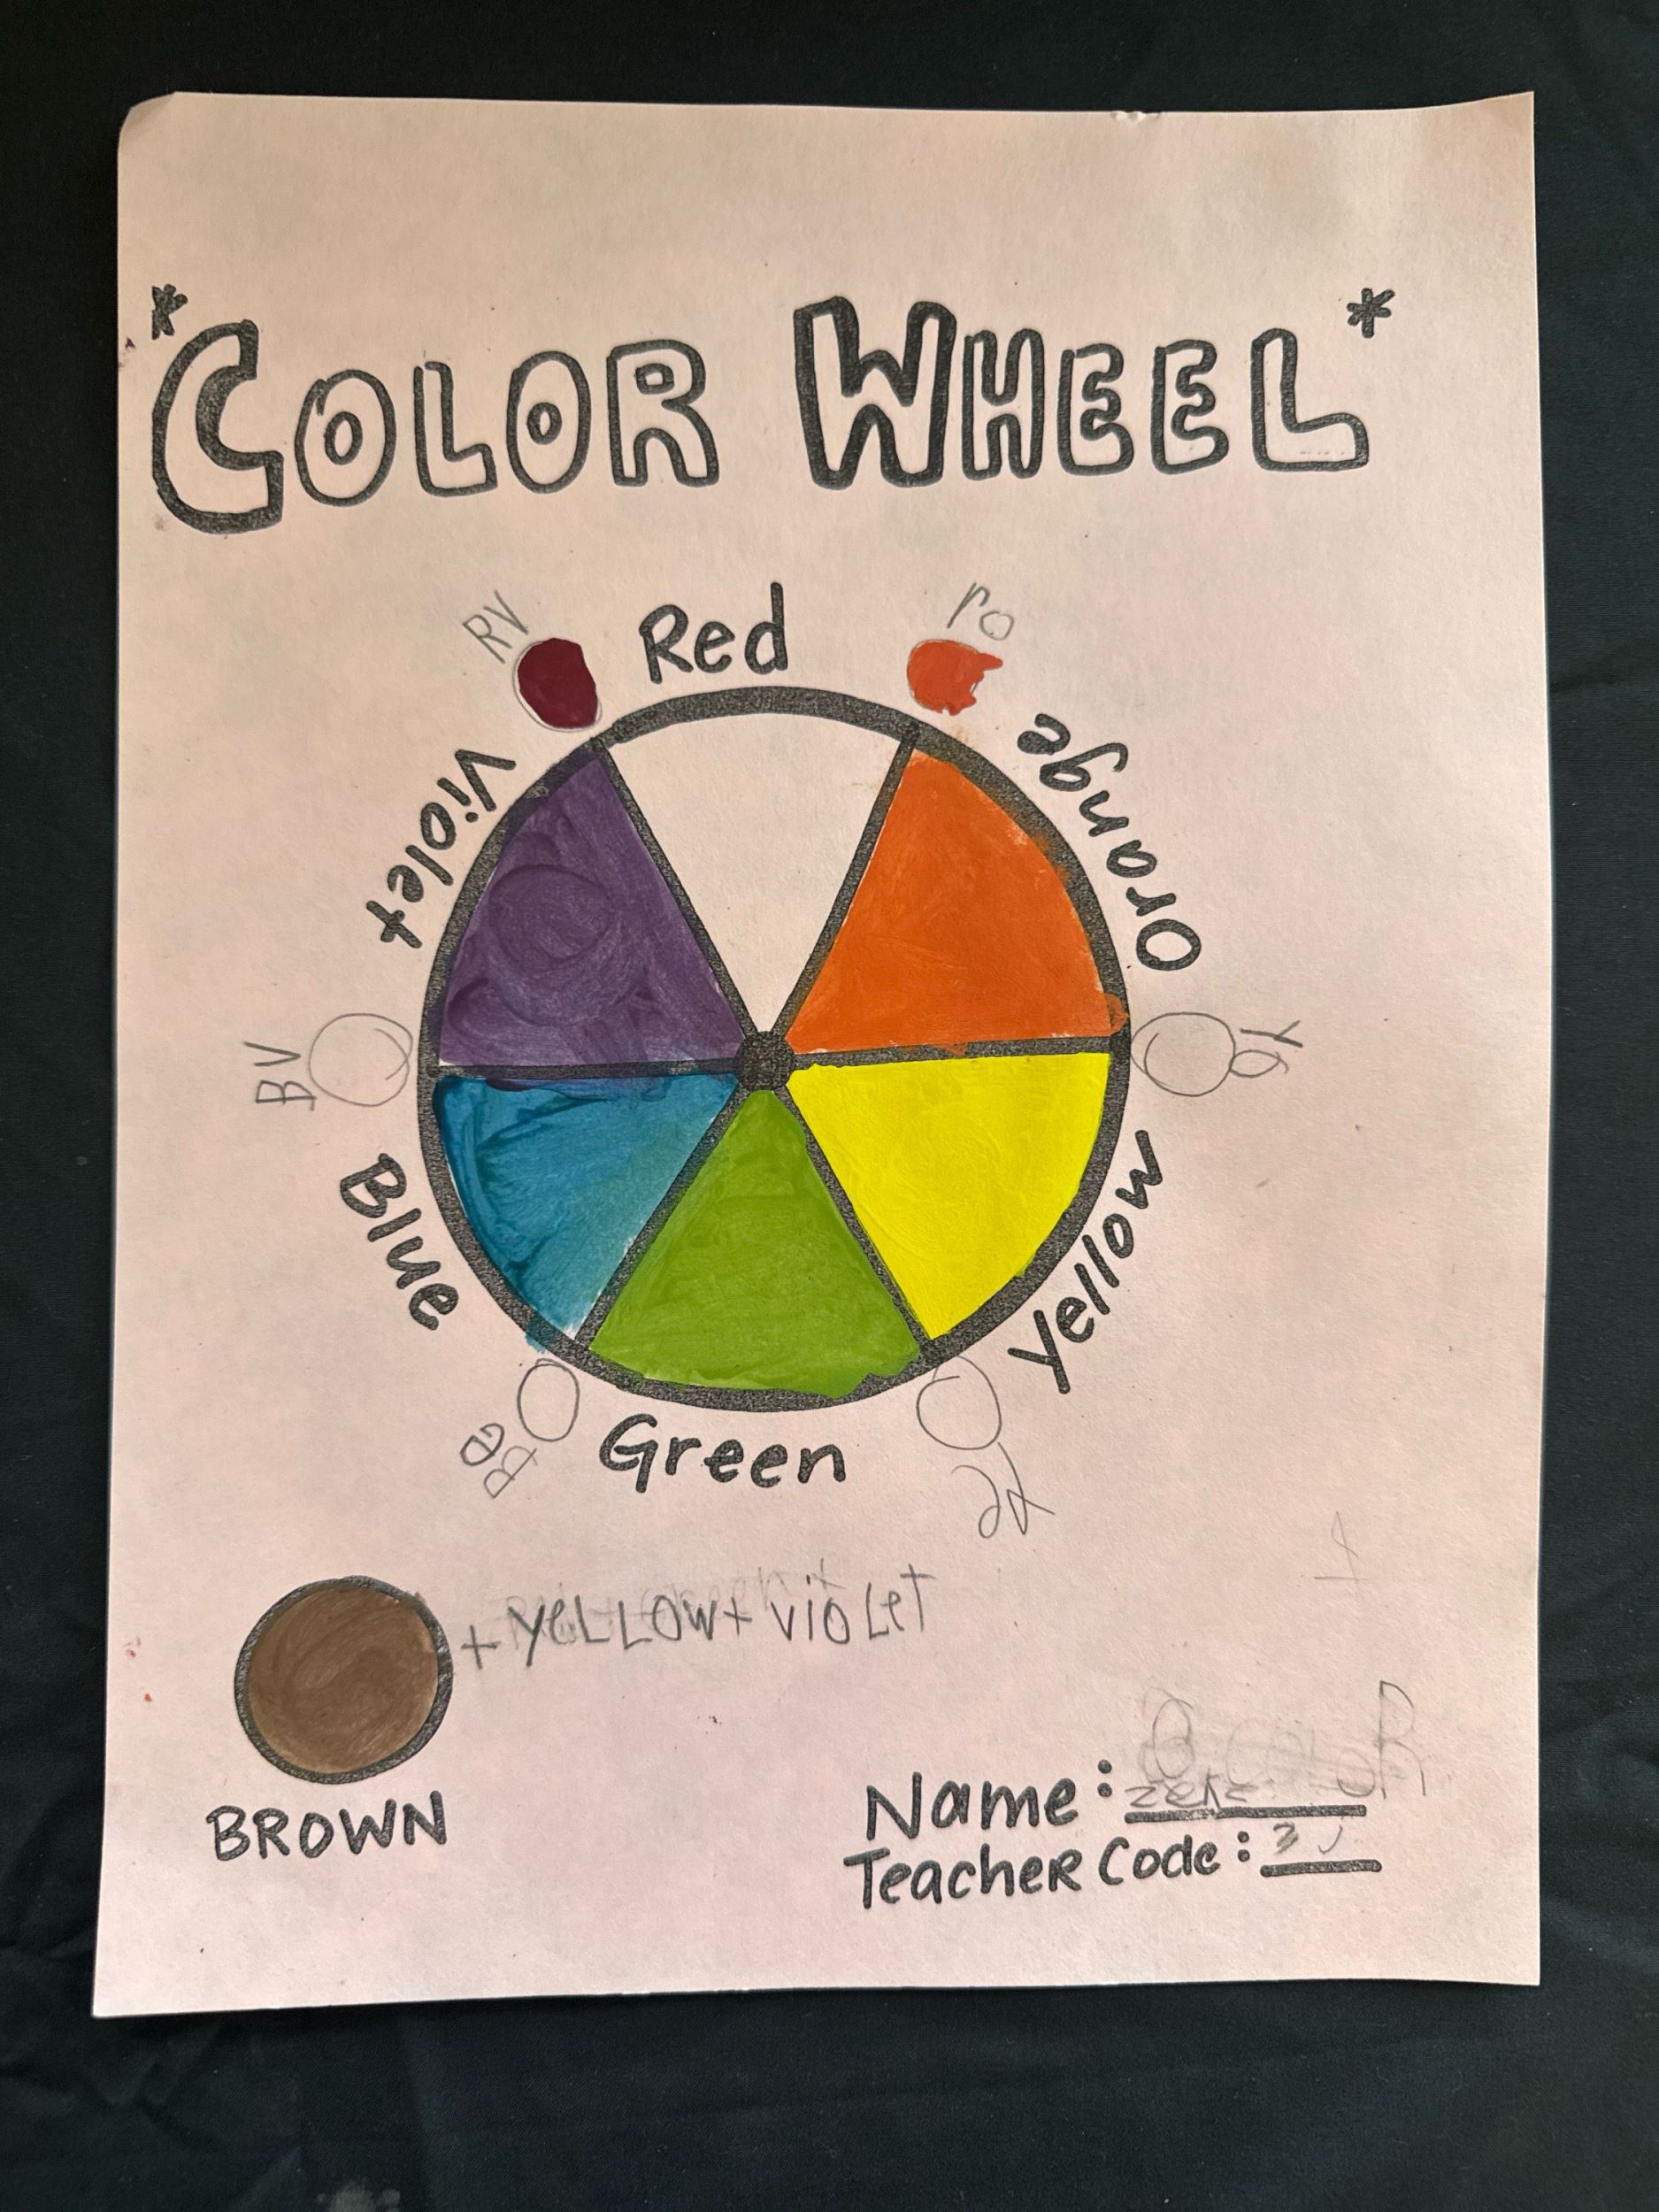 *COLOR WHEEL*
RV
Red
ro
Violet
Orange
BV
Yo
Blue
Yellow
BG
Green
+ YeLLOW + VioLeT
BROWN
Name: zeke
TeacheR Code: 3J